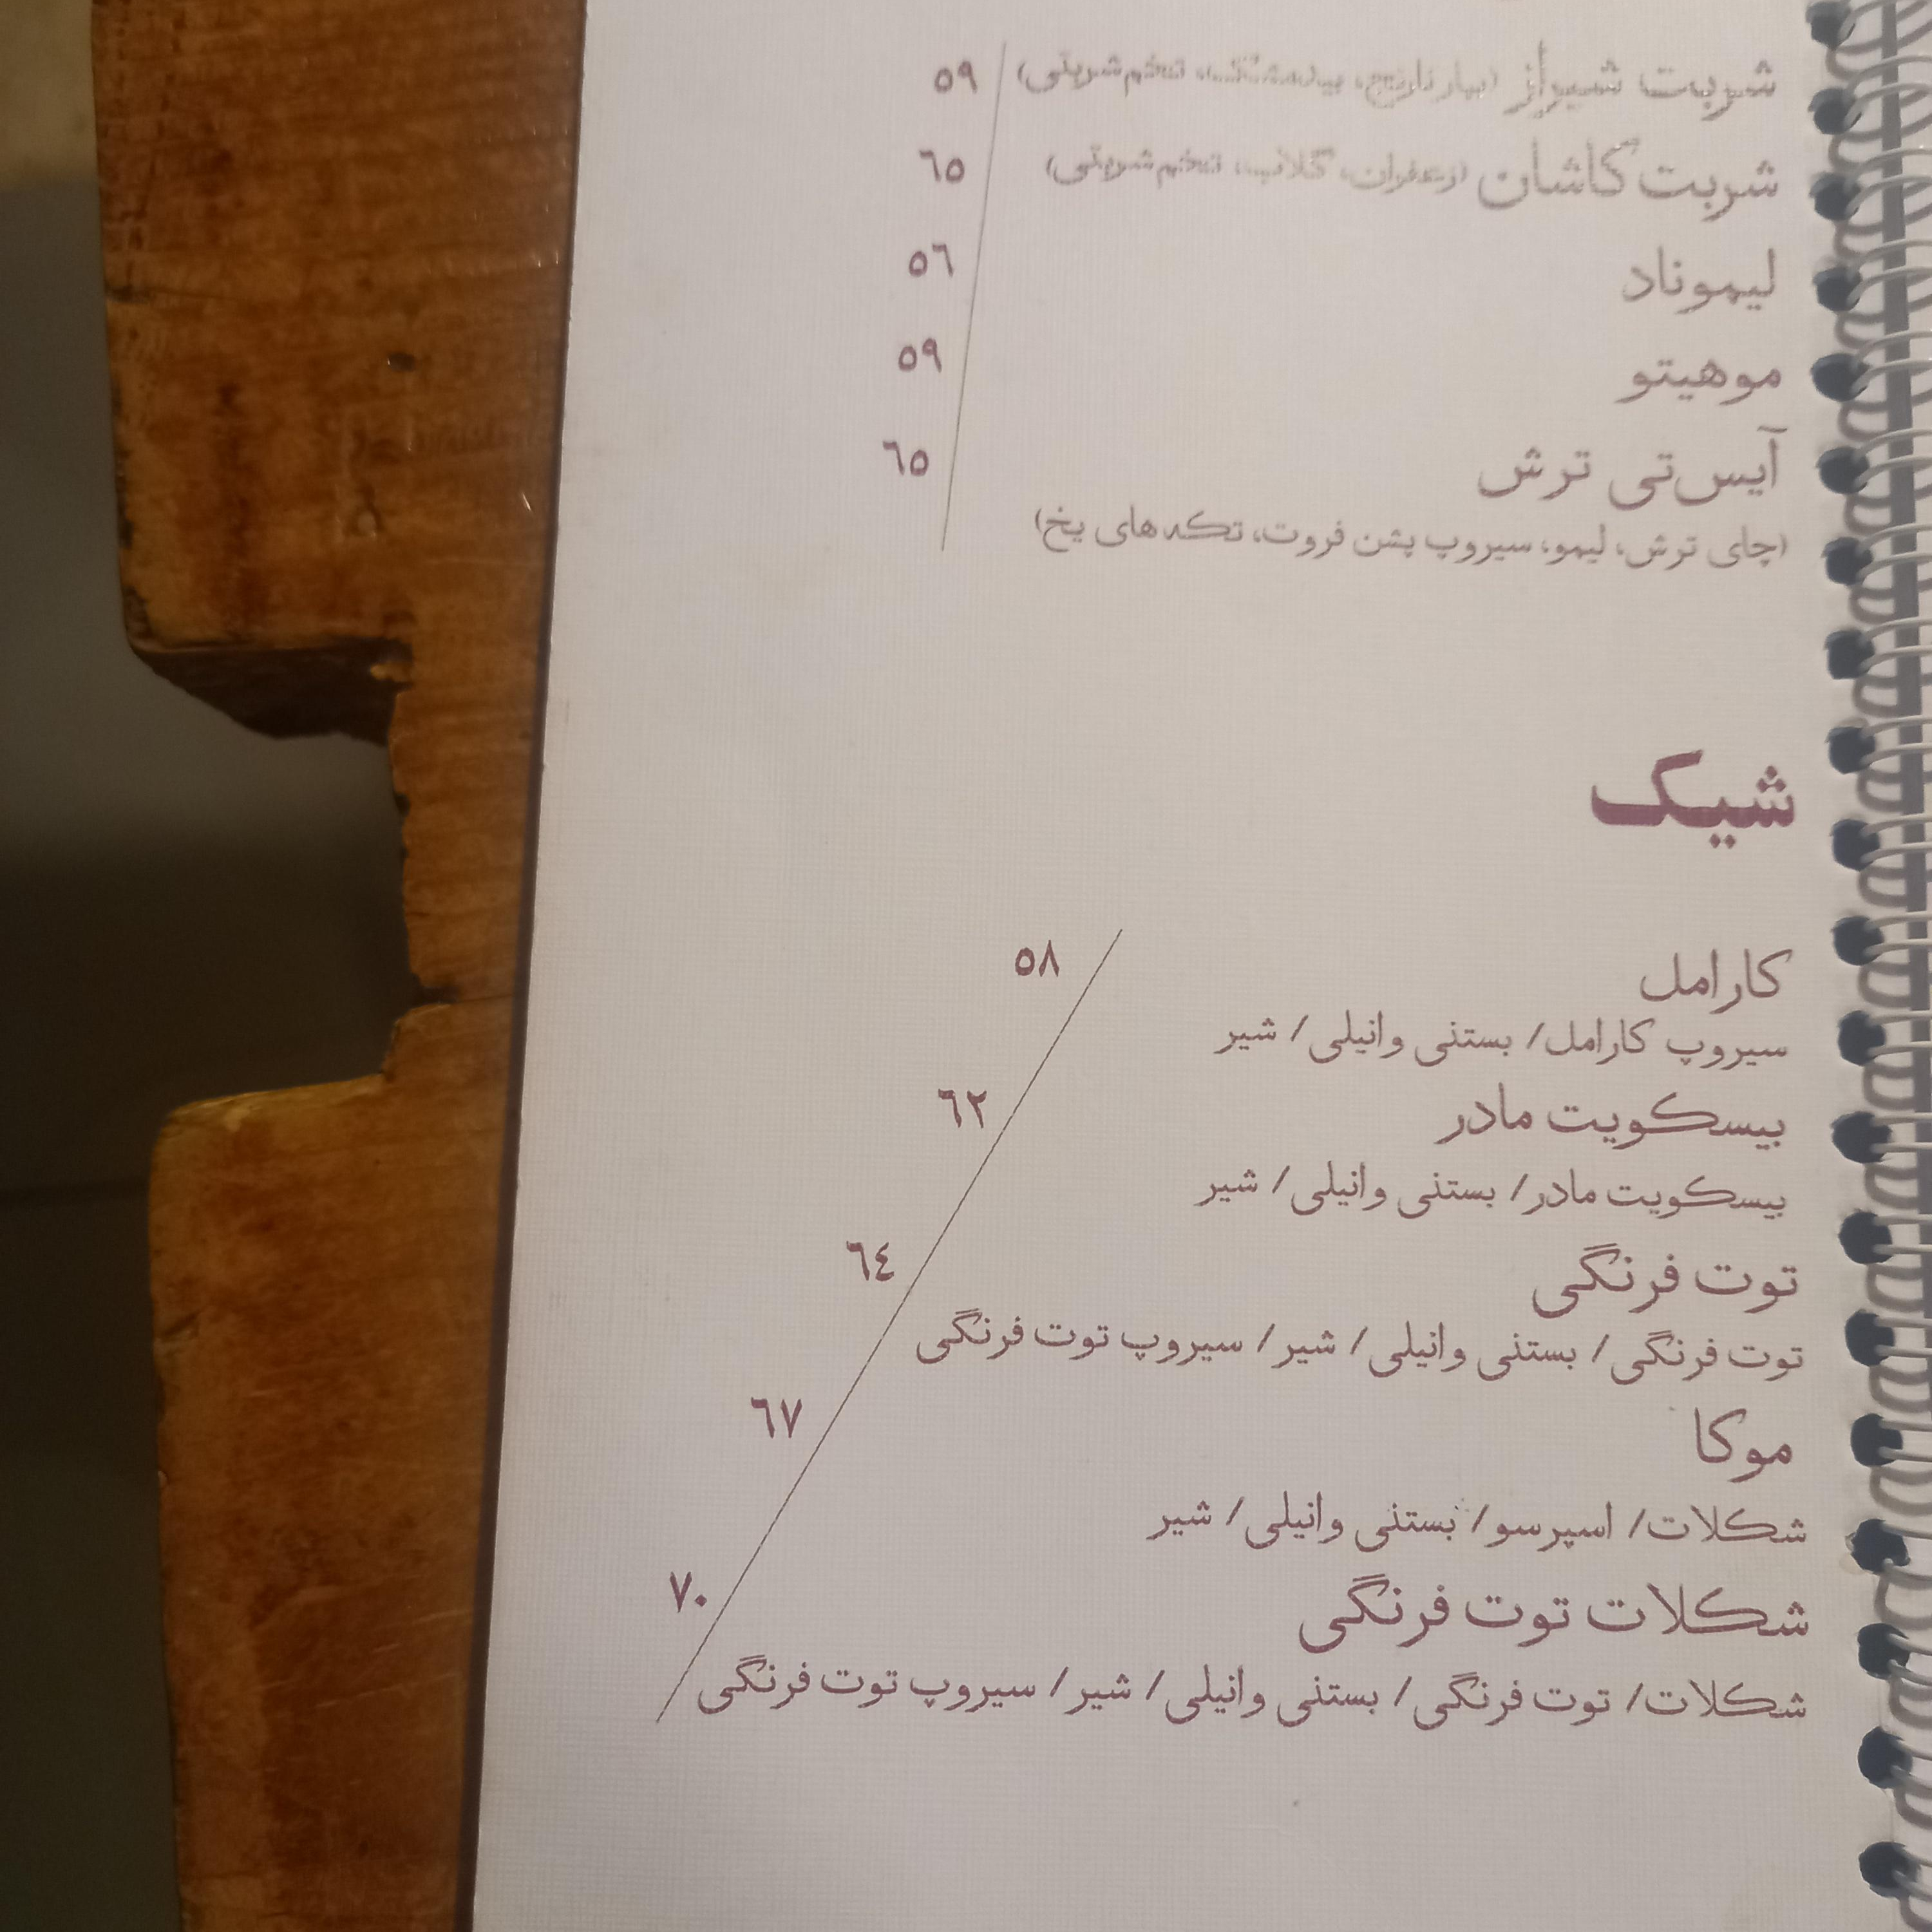 شربت شیراز (بهار نارنج، بیدمشک، تخم شربتی) ٥٩
شربت کاشان (زعفران، گلاب، تخم شربتی) ٦٥
لیموناد ٥٦
موهیتو ٥٩
آیس‌تی ترش ٦٥
(چای ترش، لیمو، سیروپ پشن فروت، تکه های یخ)
شیک
کارامل ٥٨
سیروپ کارامل/ بستنی وانیلی/ شیر
بیسکویت مادر ٦٢
بیسکویت مادر/ بستنی وانیلی/ شیر
توت فرنگی ٦٤
توت فرنگی/ بستنی وانیلی/ شیر/ سیروپ توت فرنگی
موکا ٦٧
شکلات/ اسپرسو/ بستنی وانیلی/ شیر
شکلات توت فرنگی ٧٠
شکلات/ توت فرنگی/ بستنی وانیلی/ شیر/ سیروپ توت فرنگی